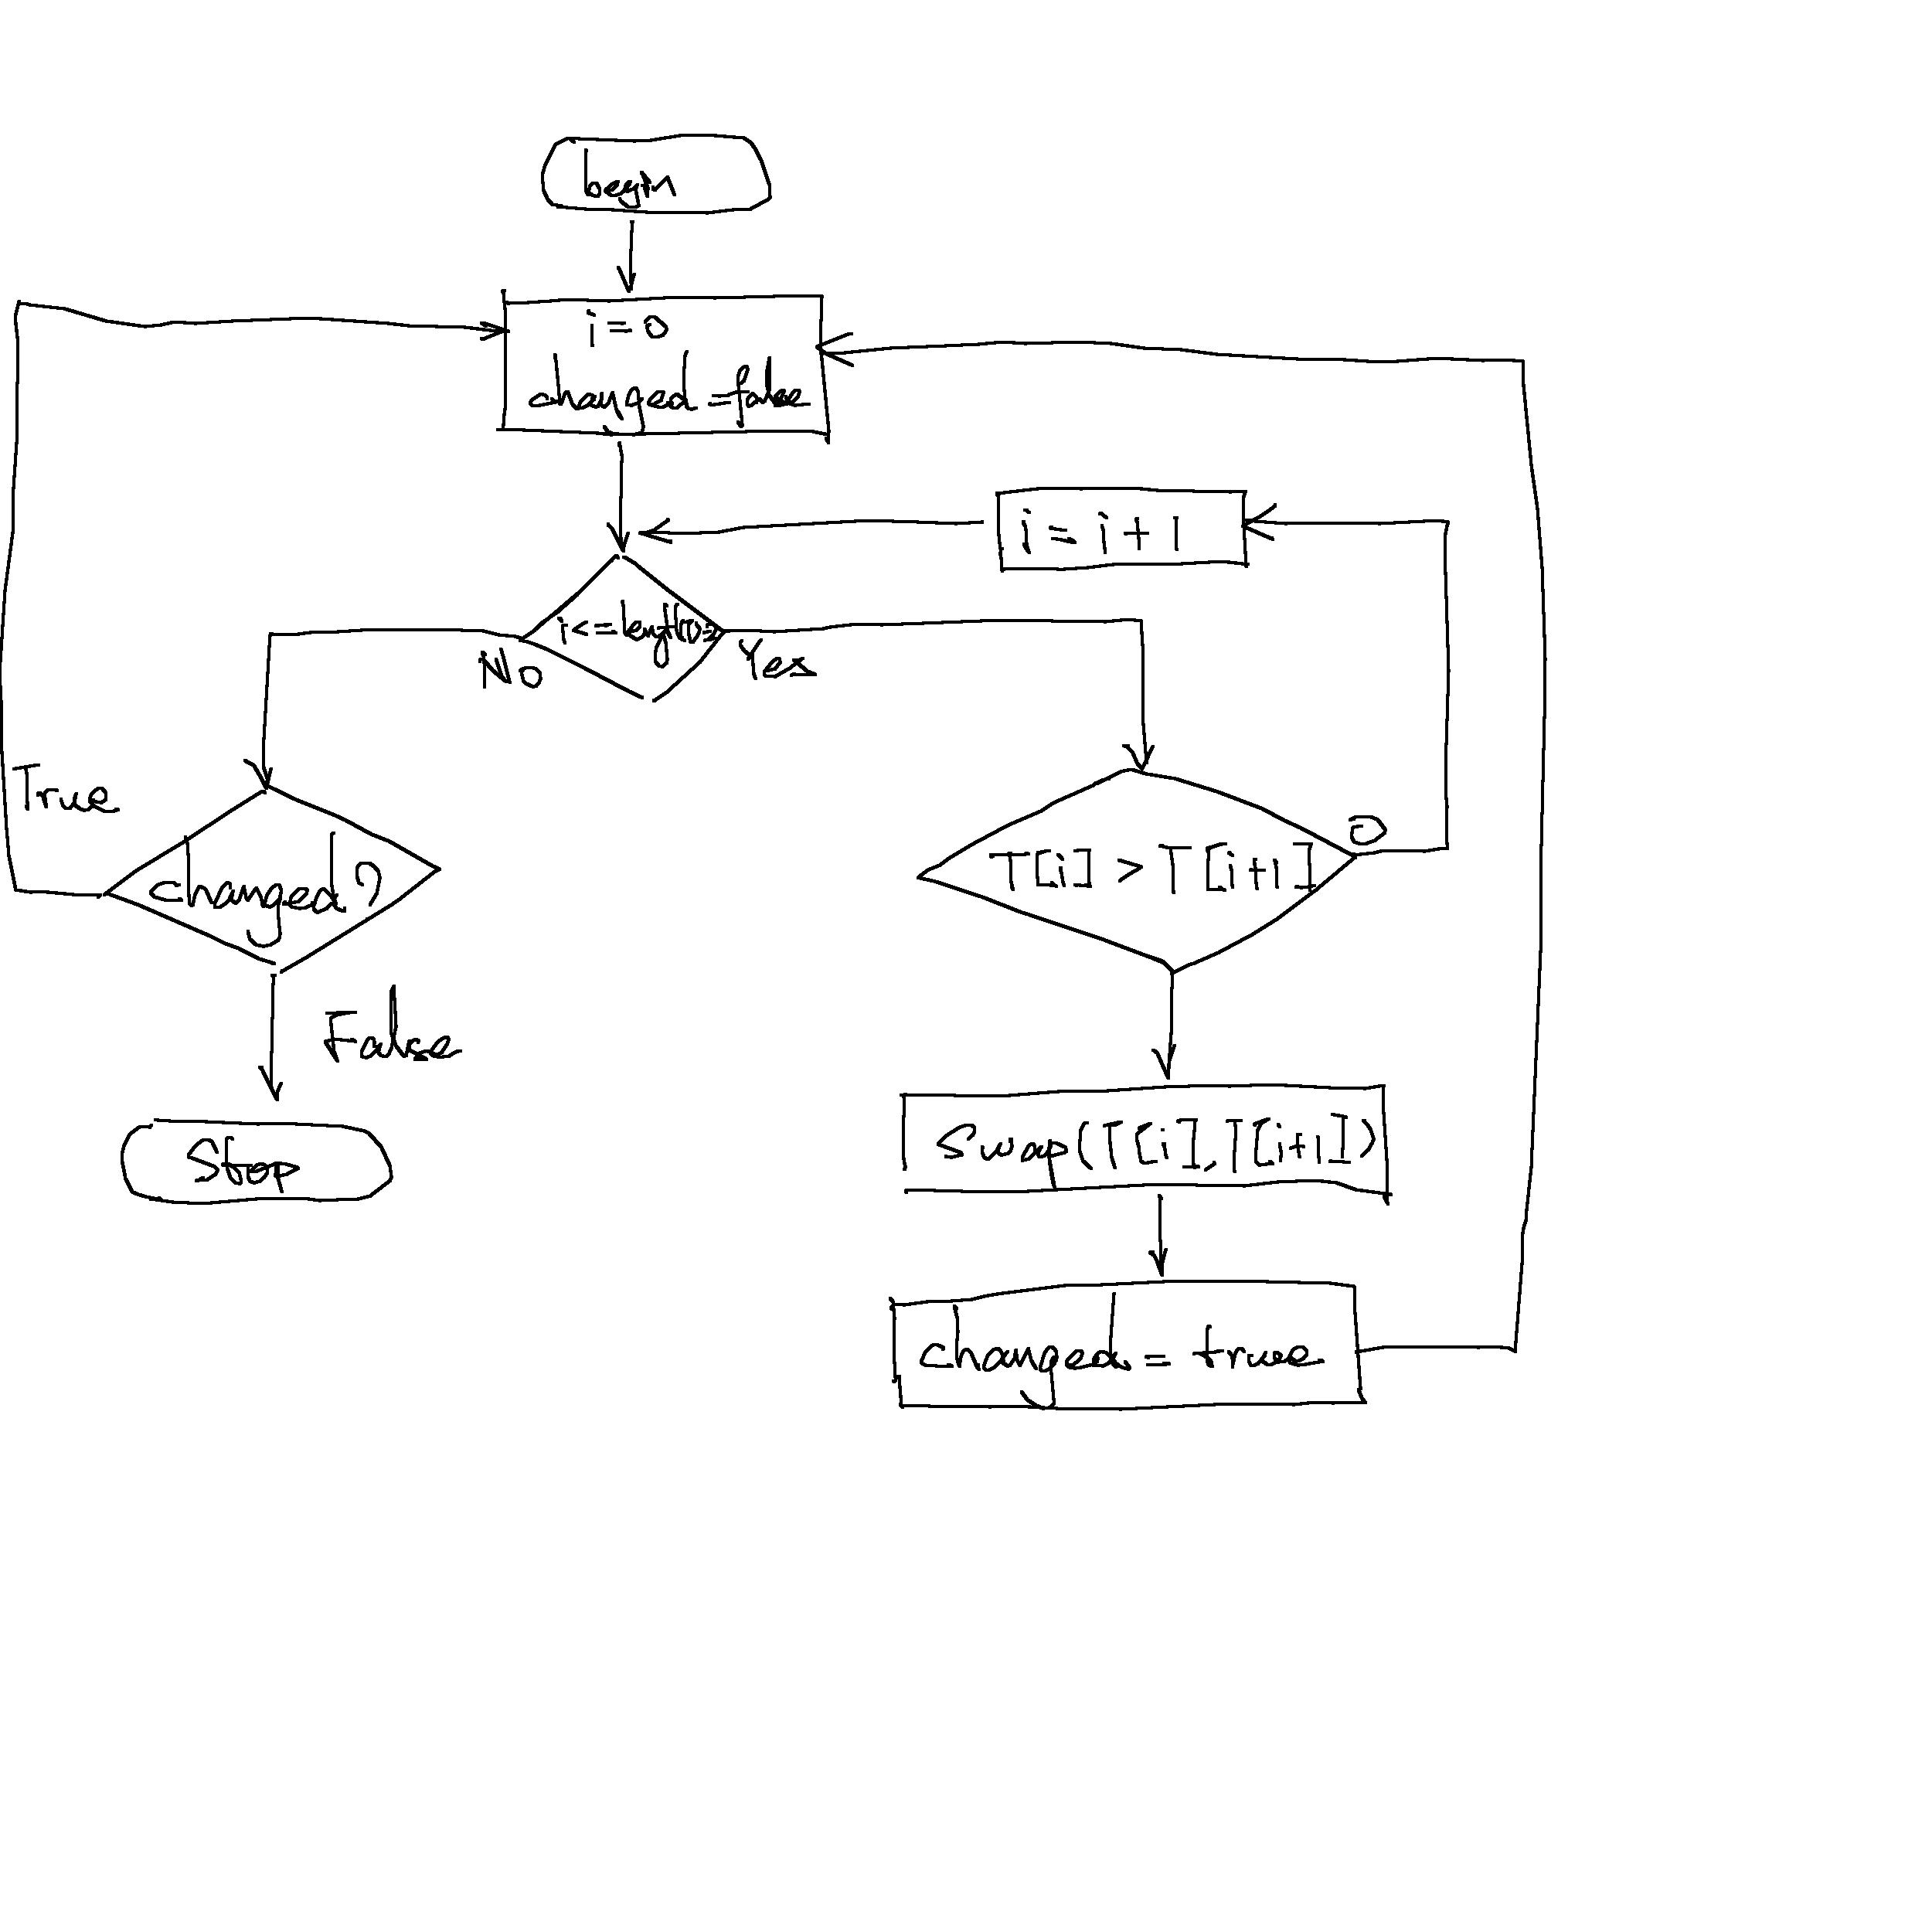 begin
i = 0
changed = false
i = i + 1
i <= length(T)-2
No
Yes
True
0
changed?
T[i] > T[i+1]
False
Swap(T[i], T[i+1])
Stop
changed = true